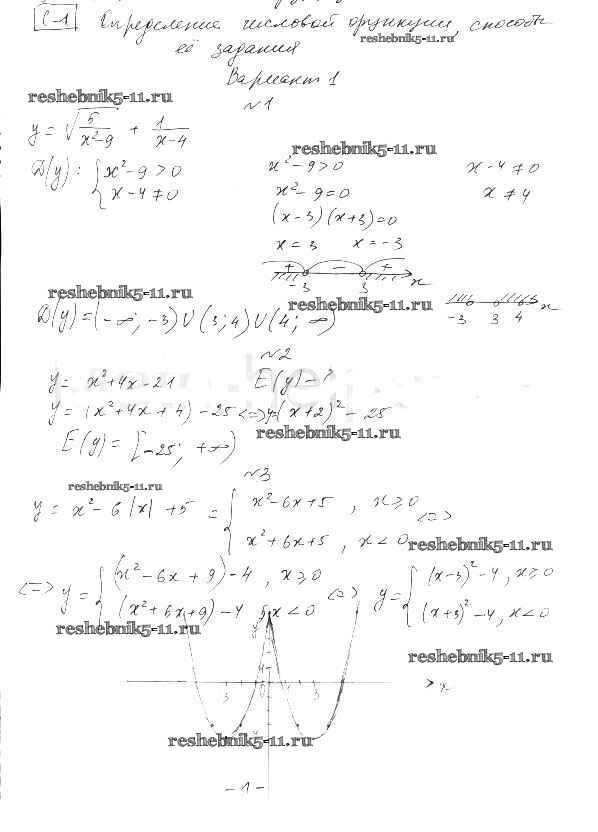 С-1 Определение числовой функции, способы
reshebnik5-11.ru
её задания
Вариант 1
reshebnik5-11.ru
№1
y = √(5/(x²-9)) + 1/(x-4)
reshebnik5-11.ru
D(y): { x²-9>0 x²-9>0 x-4≠0
x-4≠0 x²-9=0 x≠4
(x-3)(x+3)=0
x=3 x=-3
+ - +
-3 3 x
reshebnik5-11.ru reshebnik5-11.ru
-3 3 4 x
D(y)=(-∞;-3)U(3;4)U(4;∞)
№2
y= x²+4x-21 E(y)-?
y=(x²+4x+4)-25<=>y=(x+2)²-25
reshebnik5-11.ru
E(y)=[-25; +∞)
№3
reshebnik5-11.ru
y= x²-6|x|+5 = { x²-6x+5, x≥0
x²+6x+5, x<0 <=>
reshebnik5-11.ru
<=> y={ (x²-6x+9)-4, x≥0 <=> y={ (x-3)²-4, x≥0
(x²+6x+9)-4, x<0 (x+3)²-4, x<0
reshebnik5-11.ru
y 5
reshebnik5-11.ru
3 0 3 x
reshebnik5-11.ru
-1-